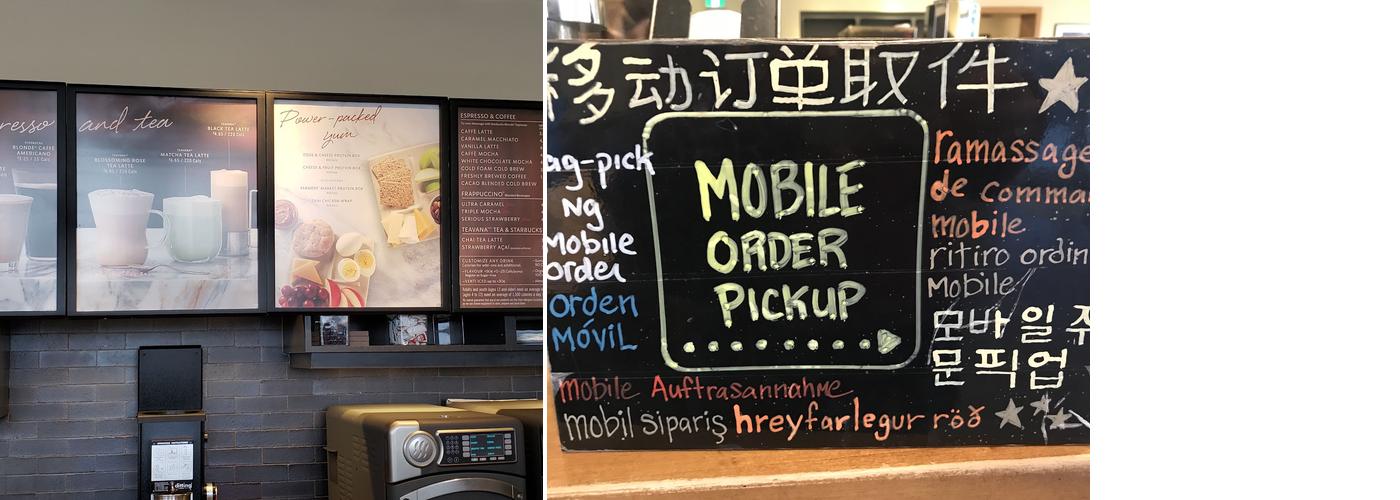 resso
BLONDE® CAFFÈ
AMERICANO
and tea
TEAVANA®
BLACK TEA LATTE
TEAVANA®
BLOSSOMING ROSE
TEA LATTE
TEAVANA®
MATCHA TEA LATTE
Power-packed
yum
EGGS & CHEESE PROTEIN BOX
CHEESE & FRUIT PROTEIN BOX
FARMERS' MARKET PROTEIN BOX
THAI CHICKEN WRAP
ESPRESSO & COFFEE
CAFFÈ LATTE
CARAMEL MACCHIATO
VANILLA LATTE
CAFFÈ MOCHA
WHITE CHOCOLATE MOCHA
COLD FOAM COLD BREW
FRESHLY BREWED COFFEE
CACAO BLENDED COLD BREW
FRAPPUCCINO®
ULTRA CARAMEL
TRIPLE MOCHA
SERIOUS STRAWBERRY
TEAVANA™ TEA & STARBUCKS
CHAI TEA LATTE
STRAWBERRY AÇAÍ
CUSTOMIZE ANY DRINK
ditting
移动订单取件
ag-pick
Ng
Mobile
order
orden
MÓVIL
MOBILE
ORDER
PICKUP
ramassage
de comma
mobile
ritiro ordin
Mobile
모바일 주
문 픽업
mobile Auftrasannahme
mobil sipariş hreyfarlegur röð